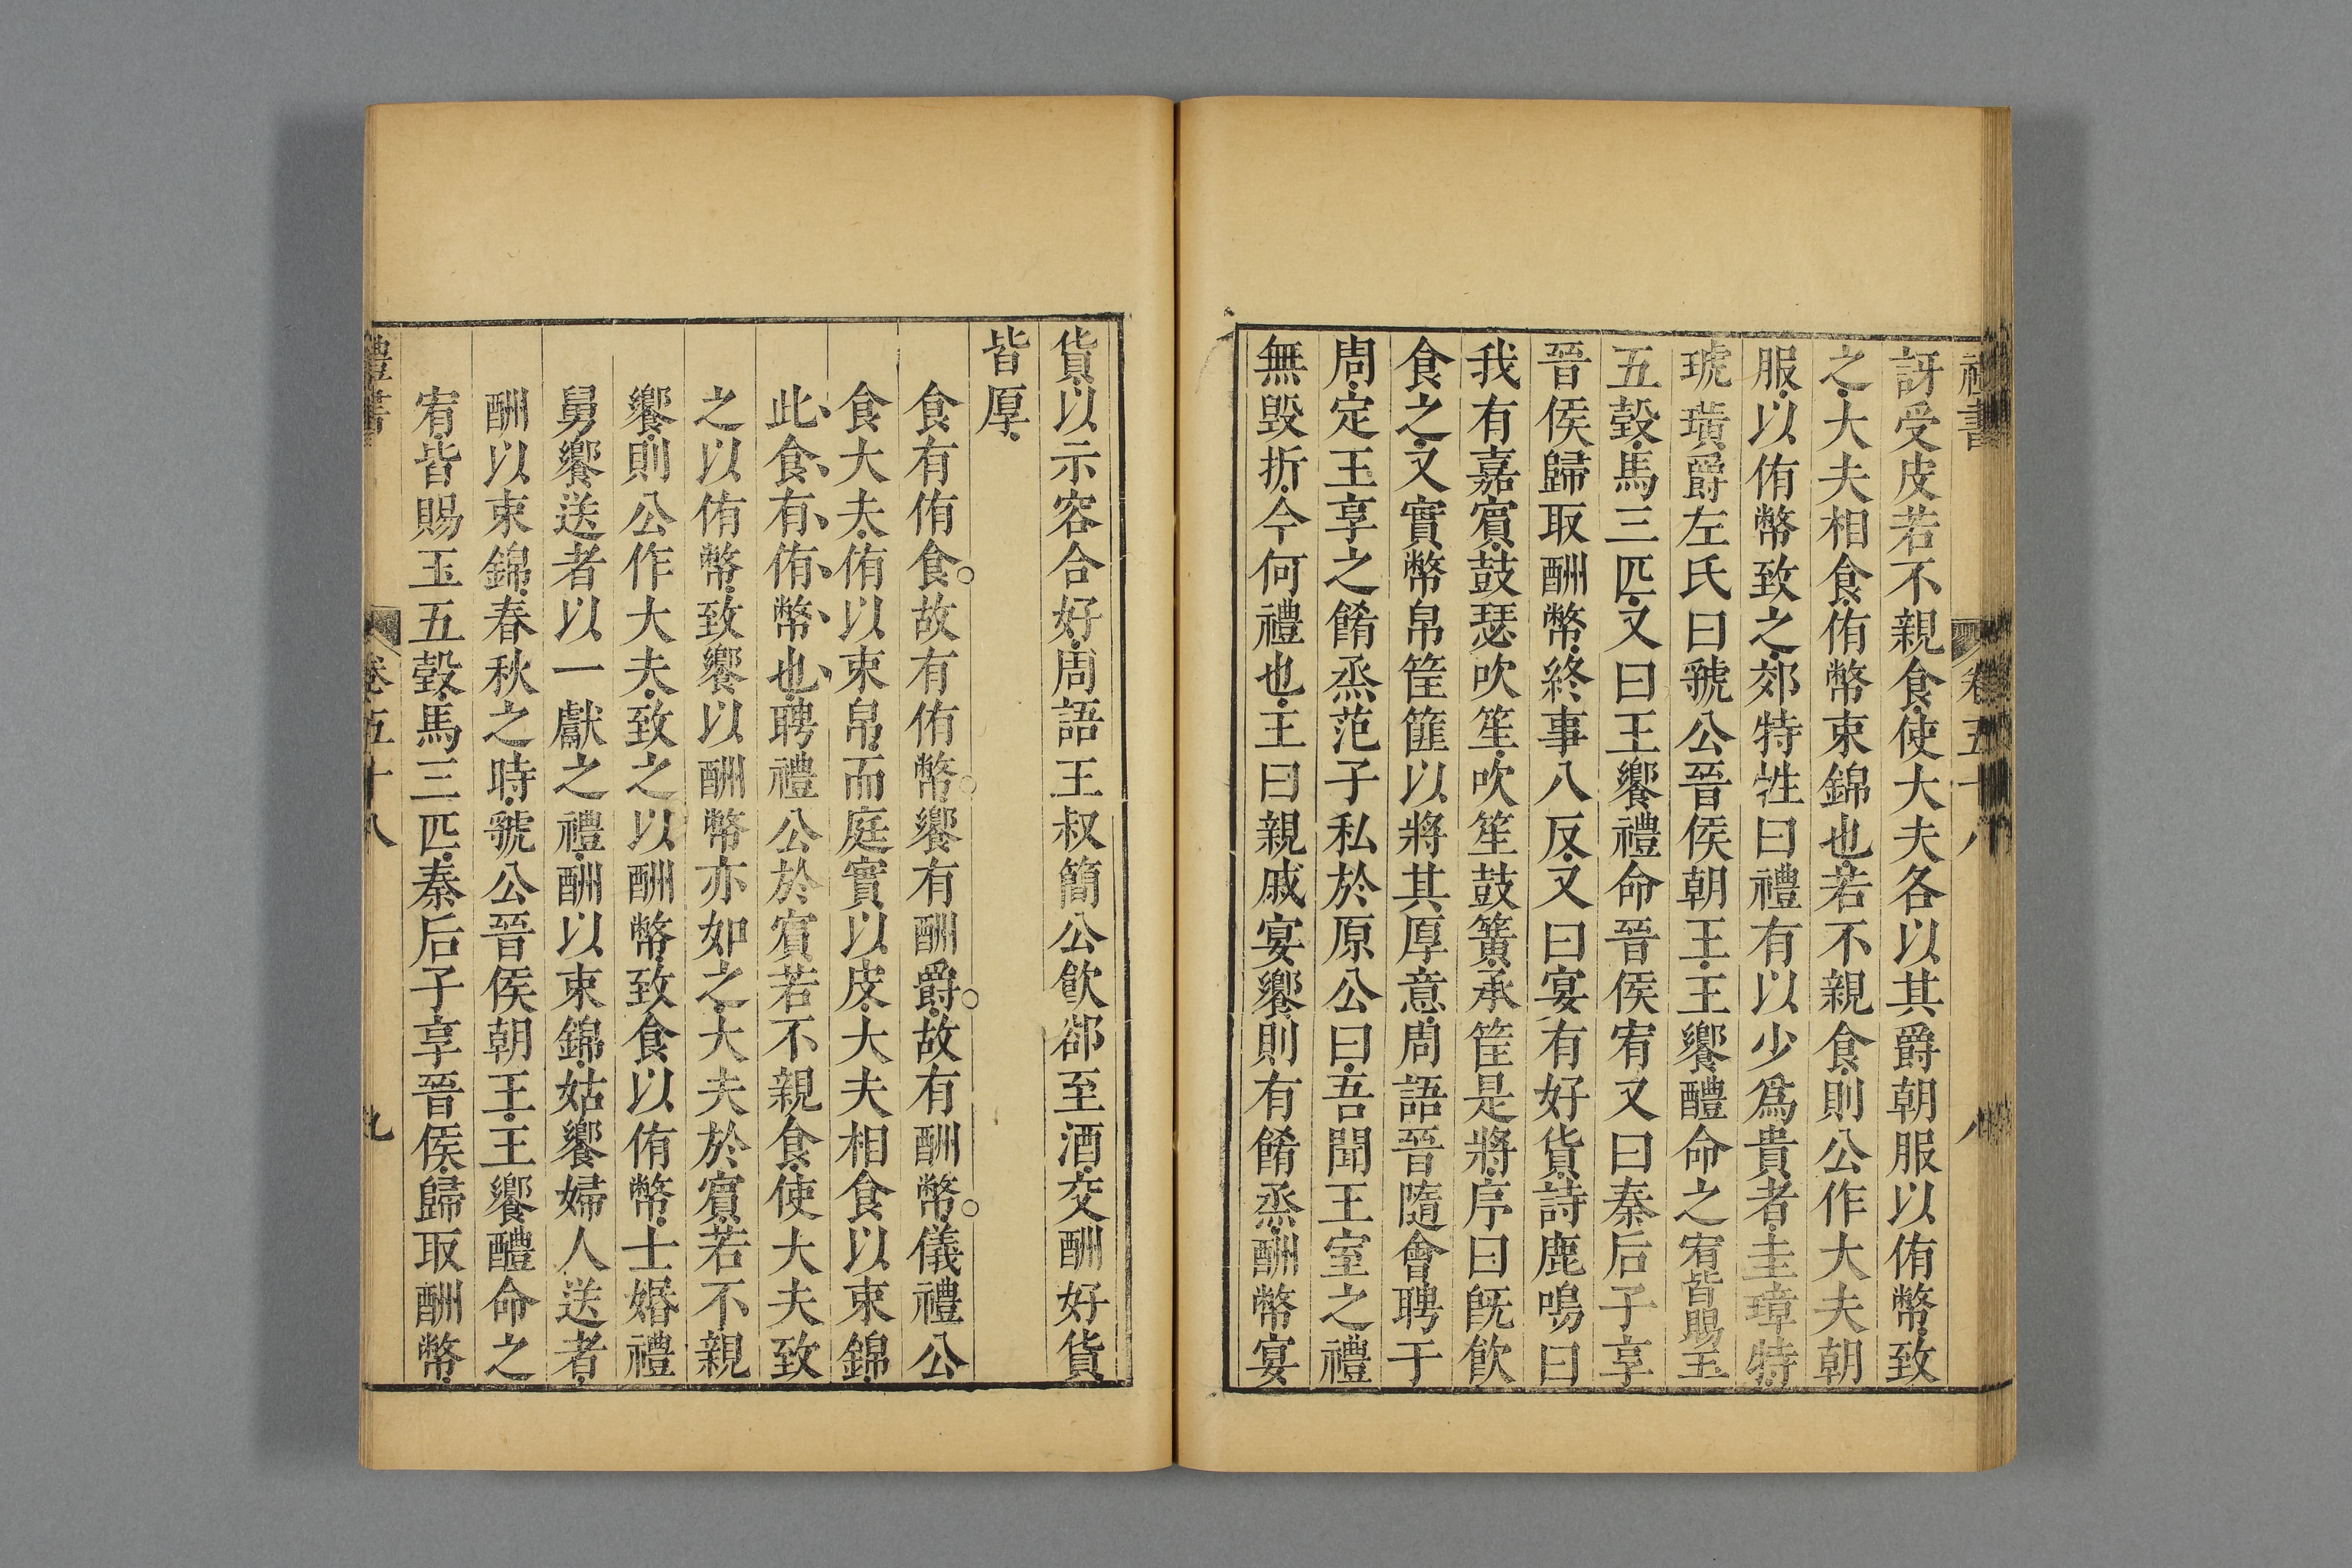 禮書 卷五十八 八
訝受皮若不親食使大夫各以其爵朝服以侑幣致
之大夫相食侑幣束錦也若不親食則公作大夫朝
服以侑幣致之郊特牲曰禮有以少爲貴者圭璋特
琥璜爵左氏曰虢公晉侯朝王王饗醴命之宥皆賜玉
五瑴馬三匹又曰王饗禮命晉侯宥又曰秦后子享
晉侯歸取酬幣終事八反又曰宴有好貨詩鹿鳴曰
我有嘉賔鼓瑟吹笙吹笙鼓簧承筐是將序曰旣飮
食之又實幣帛筐篚以將其厚意周語晉隨會聘于
周定王享之餚烝范子私於原公曰吾聞王室之禮
無毀折今何禮也王曰親戚宴饗則有餚烝酬幣宴
貨以示容合好周語王叔簡公飮郤至酒交酬好貨
皆厚
食有侑食故有侑幣饗有酬爵故有酬幣儀禮公
食大夫侑以束帛而庭實以皮大夫相食以束錦
此食有侑幣也聘禮公於賔若不親食使大夫致
之以侑幣致饗以酬幣亦如之大夫於賔若不親
饗則公作大夫致之以酬幣致食以侑幣士婚禮
舅饗送者以一獻之禮酬以束錦姑饗婦人送者
酬以束錦春秋之時虢公晉侯朝王王饗醴命之
宥皆賜玉五瑴馬三匹秦后子享晉侯歸取酬幣
禮書 卷五十八 九